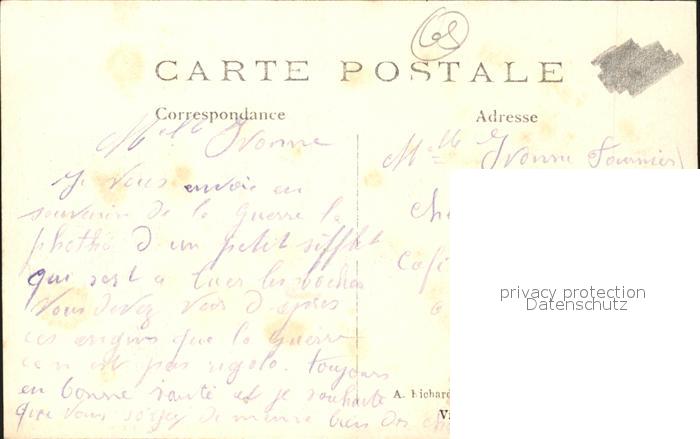 68
CARTE POSTALE
Correspondance
Adresse
Melle Yvonne
Je vous envoie en
souvenir de la guerre la
photho d un petit sifflet
qui sert a tuer les boches
Vous devez voir d apres
ces engins que la guerre
ce n est pas rigolo. toujours
en bonne santé et je souhaite
que vous soyez de meme bien des
Melle Yvonne Fournier
Ch
Caf
A. Richard
privacy protection
Datenschutz